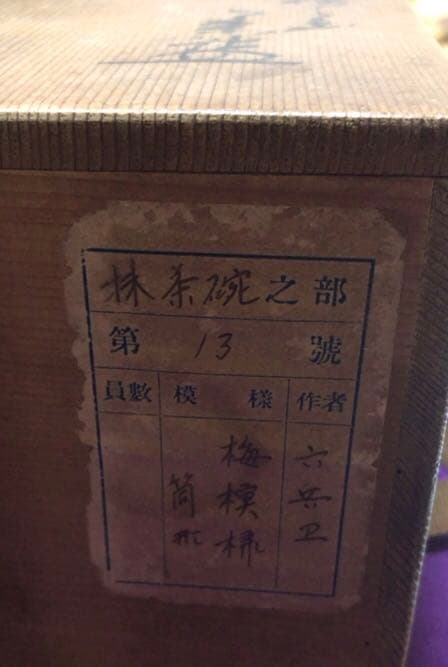 抹茶碗之部
第 13 號
員數 模樣 作者
六兵卫
梅模様
筒形